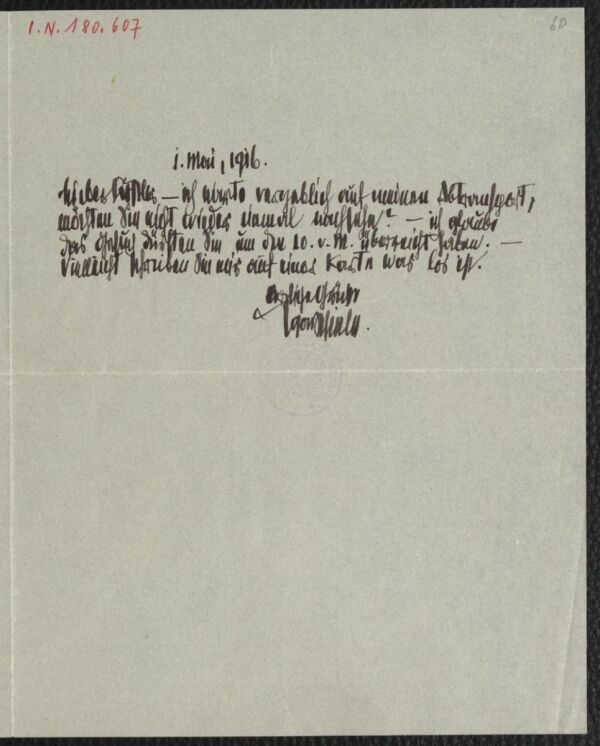 I.N. 180.607
60
1. Mai, 1916.
Lieber — ich warte vergeblich auf meinen
möchten Sie nicht wieder einmal nachsehn? — ich glaube
das Gesuch dürften Sie um den 10. v. M. überreicht haben. —
Vielleicht schreiben Sie mir auf einer Karte was los ist.
Herzliche Grüße
Egon Schiele.